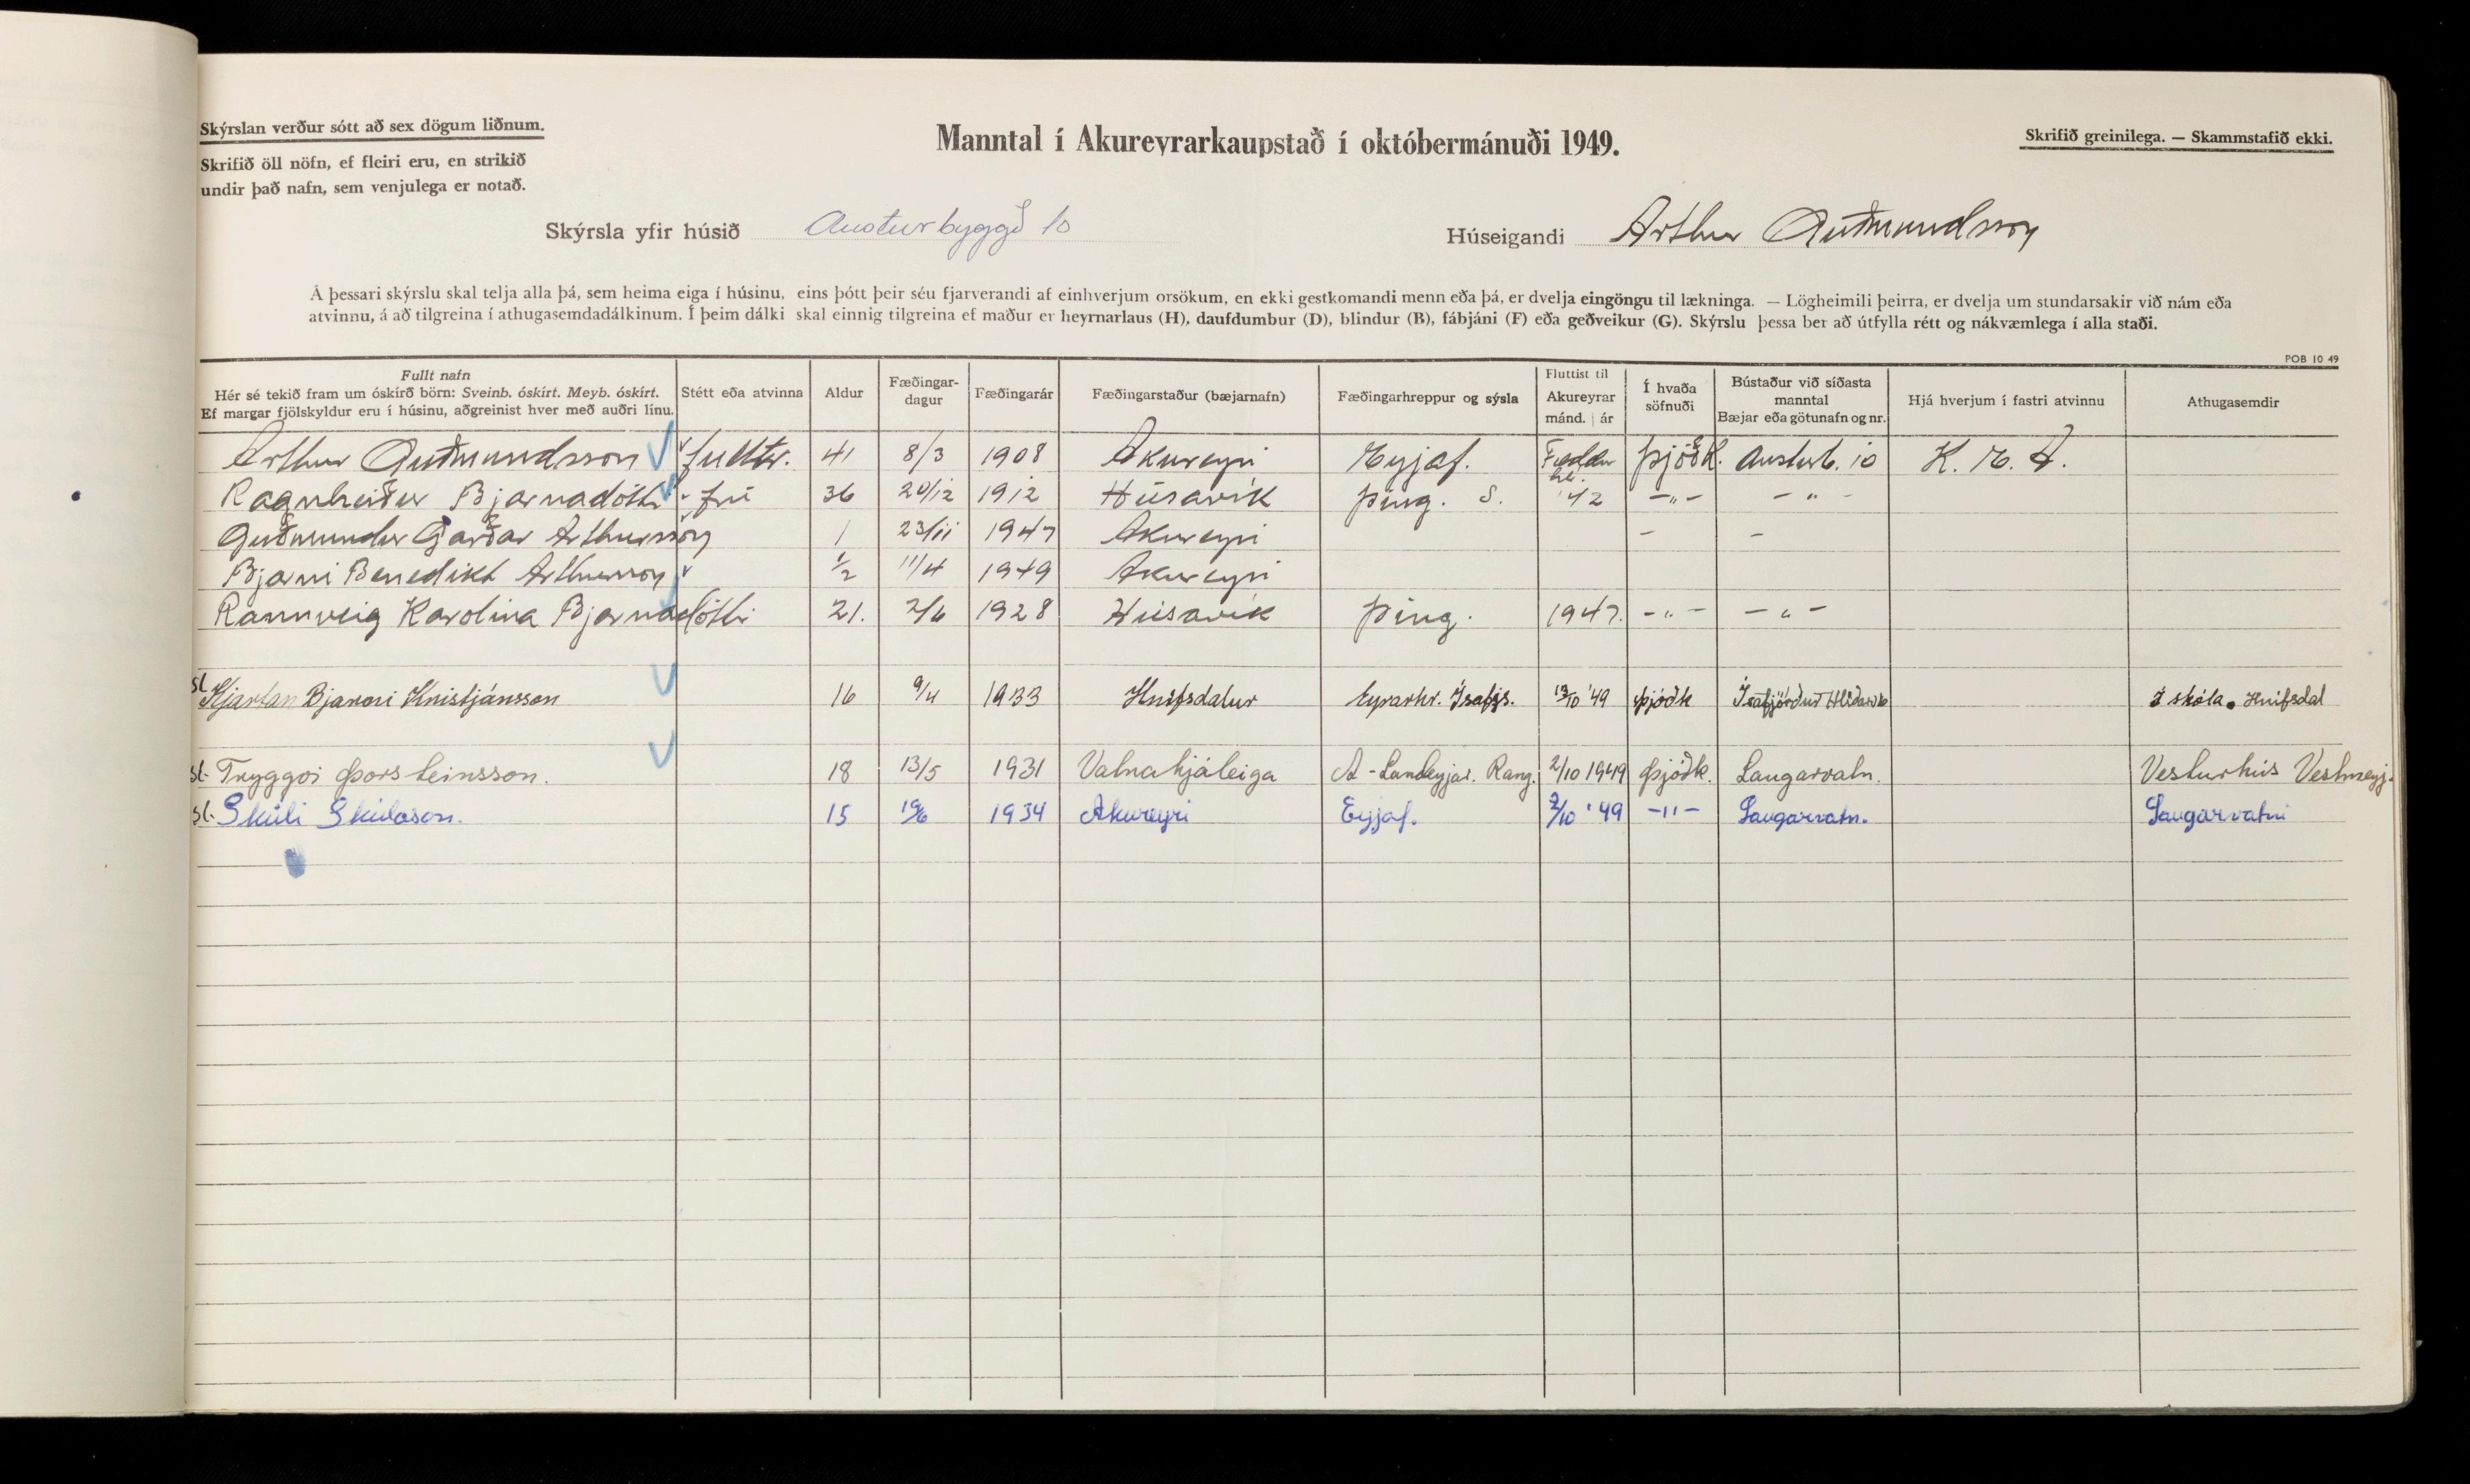 Skýrslan verður sótt að sex dögum liðnum.
Skrifið öll nöfn, ef fleiri eru, en strikið
undir það nafn, sem venjulega er notað.
Manntal í Akureyrarkaupstað í októbermánuði 1949.
Skrifið greinilega. — Skammstafið ekki.
Skýrsla yfir húsið Austurbyggð 10
Húseigandi Arthur Guðmundsson
Á þessari skýrslu skal telja alla þá, sem heima eiga í húsinu, eins þótt þeir séu fjarverandi af einhverjum orsökum, en ekki gestkomandi menn eða þá, er dvelja eingöngu til lækninga. — Lögheimili þeirra, er dvelja um stundarsakir við nám eða
atvinnu, á að tilgreina í athugasemdadálkinum. Í þeim dálki skal einnig tilgreina ef maður er heyrnarlaus (H), daufdumbur (D), blindur (B), fábjáni (F) eða geðveikur (G). Skýrslu þessa ber að útfylla rétt og nákvæmlega í alla staði.
POB 10 49
Fullt nafn
Hér sé tekið fram um óskírð börn: Sveinb. óskírt. Meyb. óskírt.
Ef margar fjölskyldur eru í húsinu, aðgreinist hver með auðri línu.
Stétt eða atvinna
Aldur
Fæðingar-
dagur
Fæðingarár
Fæðingarstaður (bæjarnafn)
Fæðingarhreppur og sýsla
Fluttist til
Akureyrar
mánd. | ár
Í hvaða
söfnuði
Bústaður við síðasta
manntal
Bæjar eða götunafn og nr.
Hjá hverjum í fastri atvinnu
Athugasemdir
Arthur Guðmundsson fulltr. 41 8/3 1908 Akureyri Eyjaf. Fæddur hé. þjóðk. Austurb. 10 K. E. A.
Ragnheiður Bjarnadóttir frú 36 20/12 1912 Húsavík Þing. S. '42 -"- -"-
Guðmundur Garðar Arthursson 1 23/11 1947 Akureyri - -
Bjarni Benedikt Arthursson 1/2 11/4 1949 Akureyri
Rannveig Karolína Bjarnadóttir 21. 2/6 1928 Húsavík Þing. 1947. -"- -"-
sl. Kjartan Bjarni Kristjánsson 16 9/4 1933 Hnífsdalur Eyrarhr. Ísafjs. 13/10 '49 þjóðk Ísafjörður Í skóla. Hnífsdal
sl. Tryggvi Þorsteinsson. 18 13/5 1931 Vatnahjáleiga A-Landeyjar. Rang. 2/10 1949 Þjóðk. Laugarvatn. Vesturhús Vestmeyj.
sl. Skúli Skúlason. 15 1934 Akureyri Eyjaf. 2/10 '49 -"- Laugarvatn. Laugarvatni